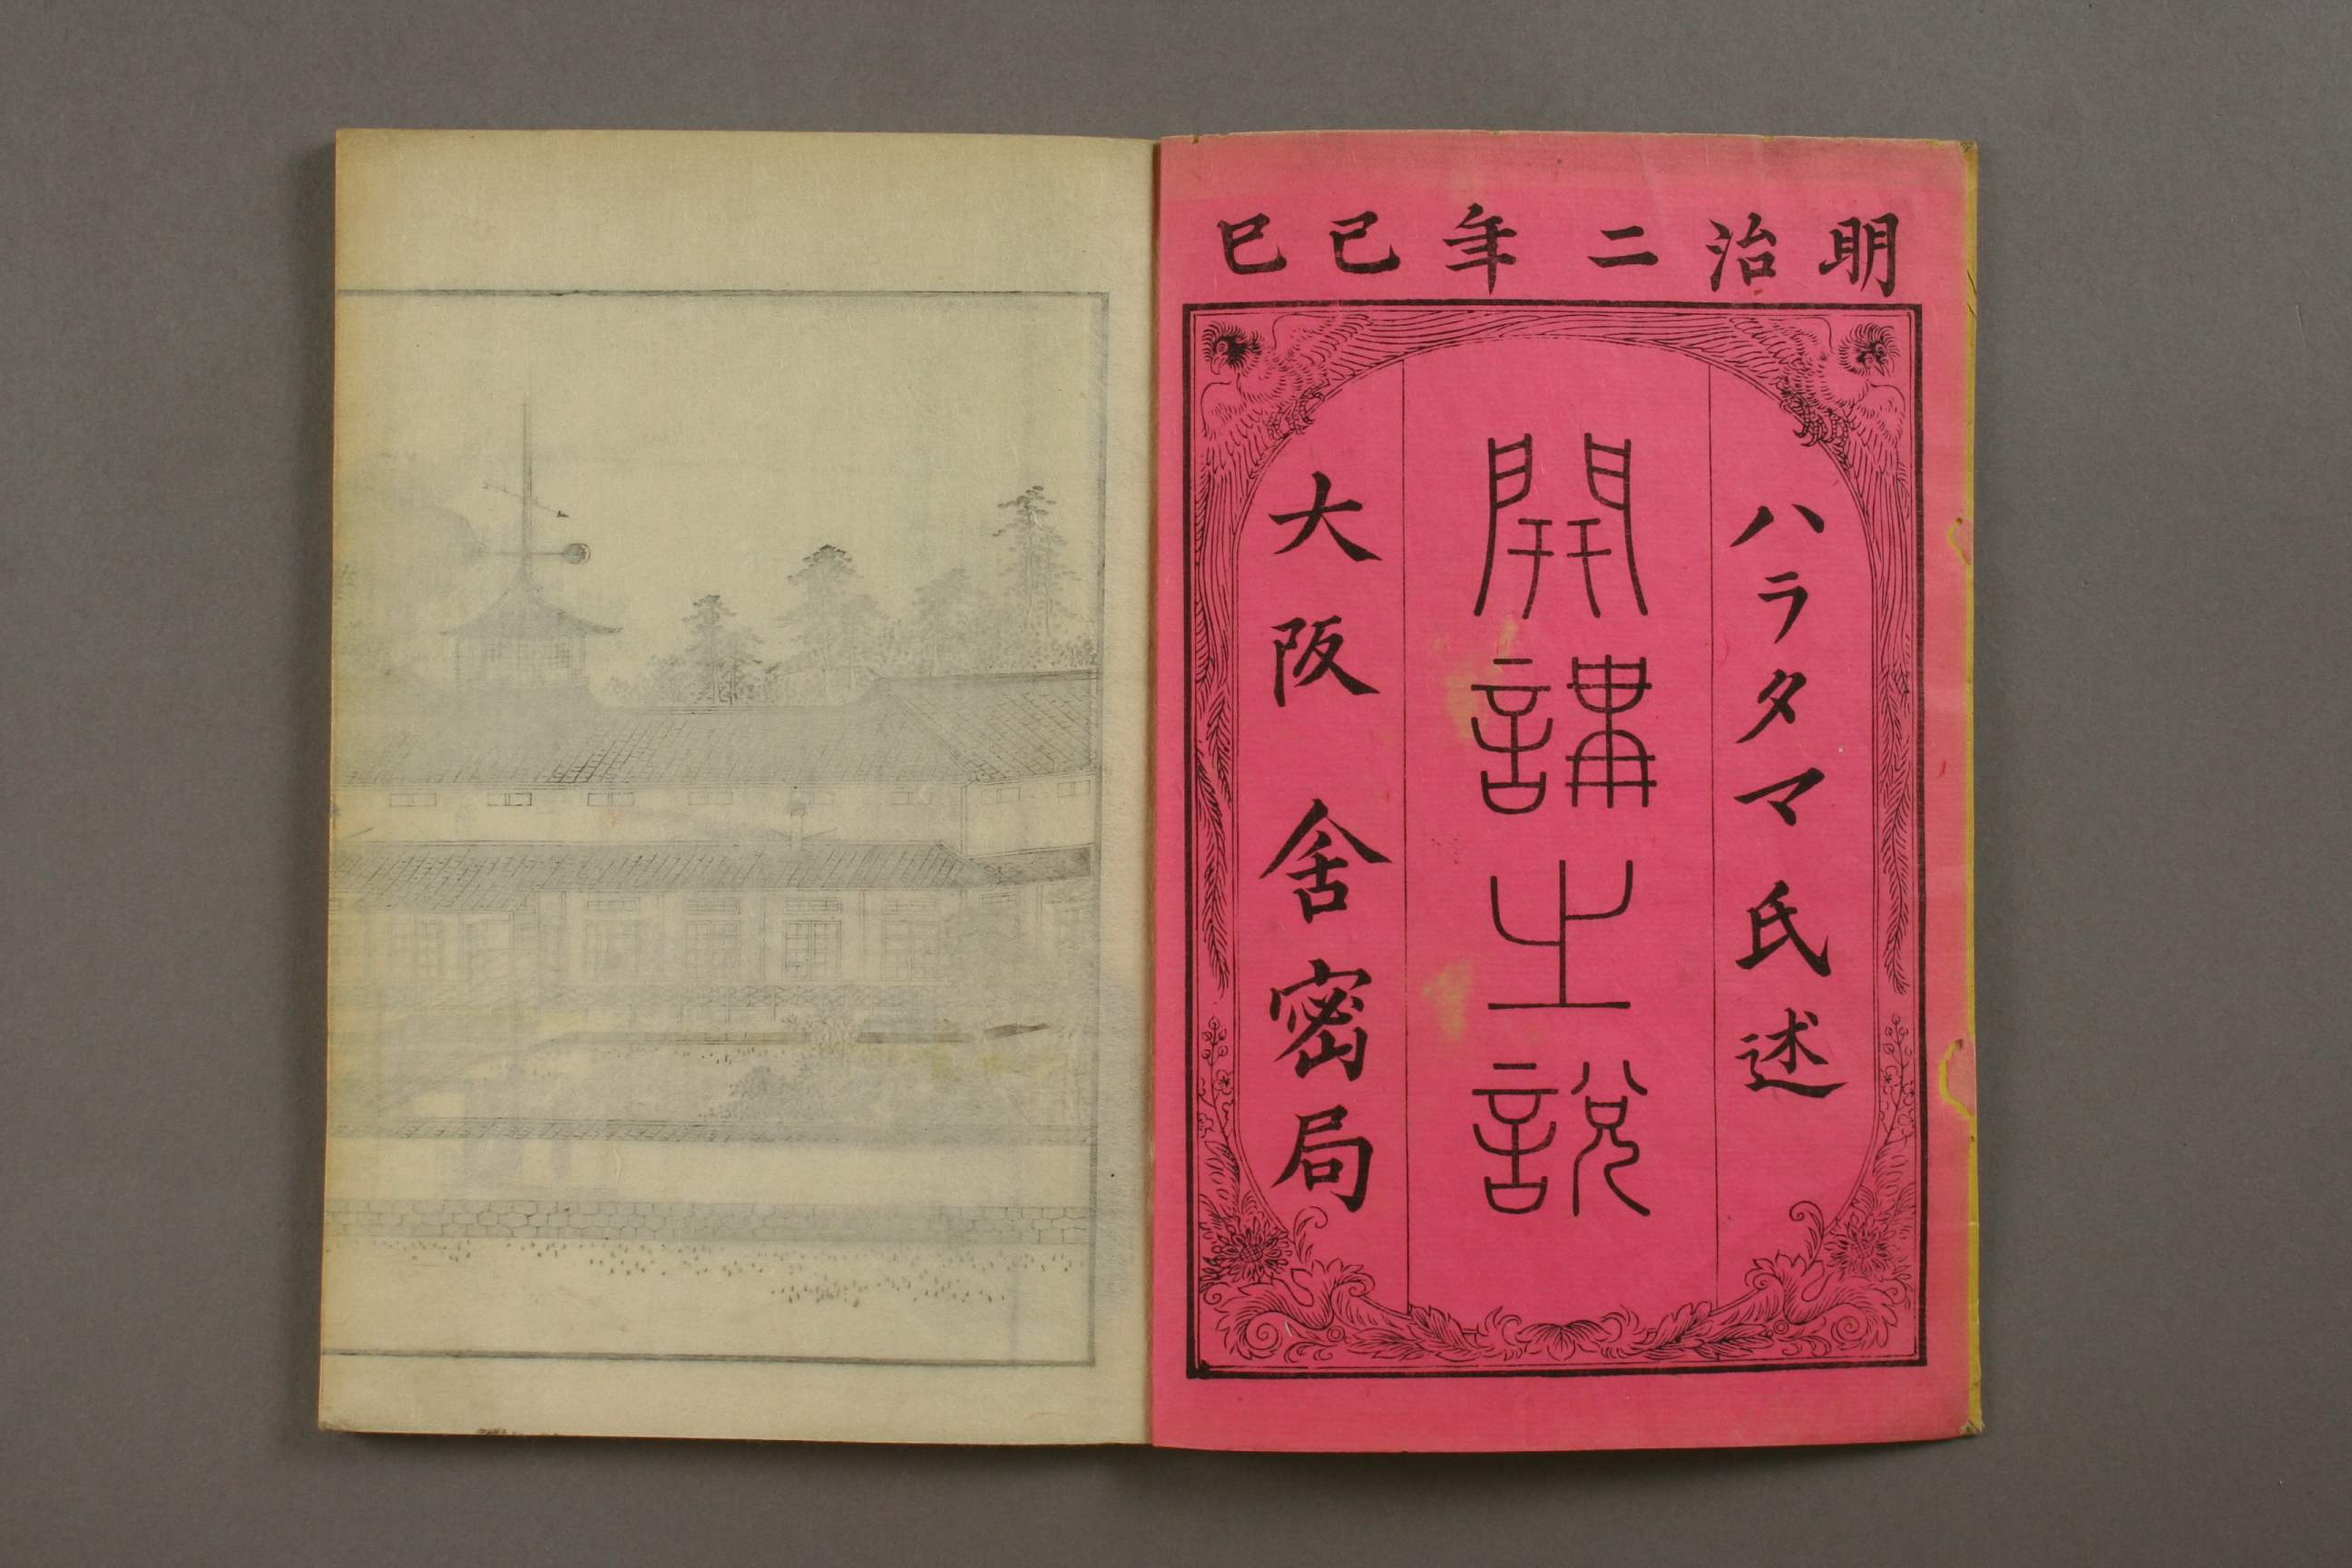 明治二年己巳
ハラタマ氏述
開講之説
大阪 舍密局